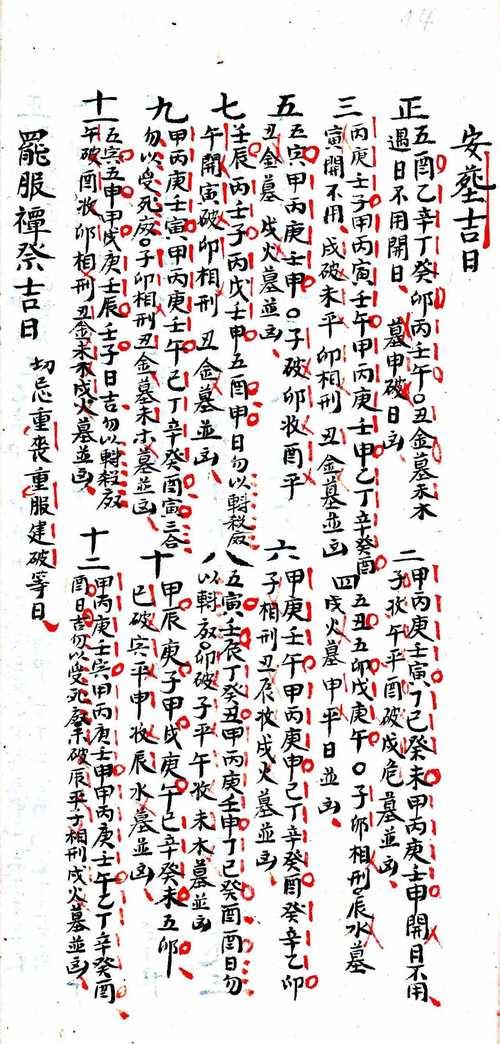 14
安塟吉日
正
五酉乙辛丁癸卯丙壬午〇丑金墓未木
遇日不用開日、墓申破日凶、
二
甲丙庚壬寅、丁己癸未甲丙庚壬申開日不用
子收午平酉破戌危墓並凶
三
丙庚壬子甲丙寅壬午甲丙庚壬申乙丁辛癸酉
寅開不用、戌破未平卯相刑丑金墓並凶
四
五丑五卯戊庚午〇子卯相刑辰水墓
戌火墓申平日並凶、
五
五寅、甲丙庚壬申〇子破卯收酉平
丑金墓戌火墓並凶、
六
甲庚壬午甲丙庚申己丁辛癸酉癸辛乙卯
子相刑丑辰收戌火墓並凶、
七
壬辰丙壬子丙戊壬申五酉申日勿以
午開寅破卯相刑丑金墓並凶、
八
五寅、壬辰丁癸丑甲丙庚壬申丁己癸酉酉日勿
卯破子平午收未木墓並凶
九
甲丙庚壬寅、甲丙庚壬午己丁辛癸酉寅三合
勿以受死〇子卯相刑丑金墓未木墓並凶、
十
甲辰庚子甲戌庚午己辛癸未五卯
巳破寅平申收辰水墓並凶
十一
五寅、五申甲戌庚壬辰壬子日吉勿以
午破酉收卯相刑丑金未木戌火墓並凶、
十二
甲丙庚壬寅甲丙庚壬申甲丙庚壬午乙丁辛癸酉
酉日吉勿以受死未破辰平子相刑戌火墓並凶、
罷服禫祭吉日
切忌重喪重服建破等日、